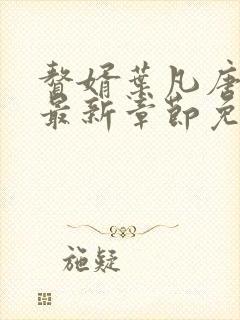 贅婿葉凡唐
最新章節免
施疑